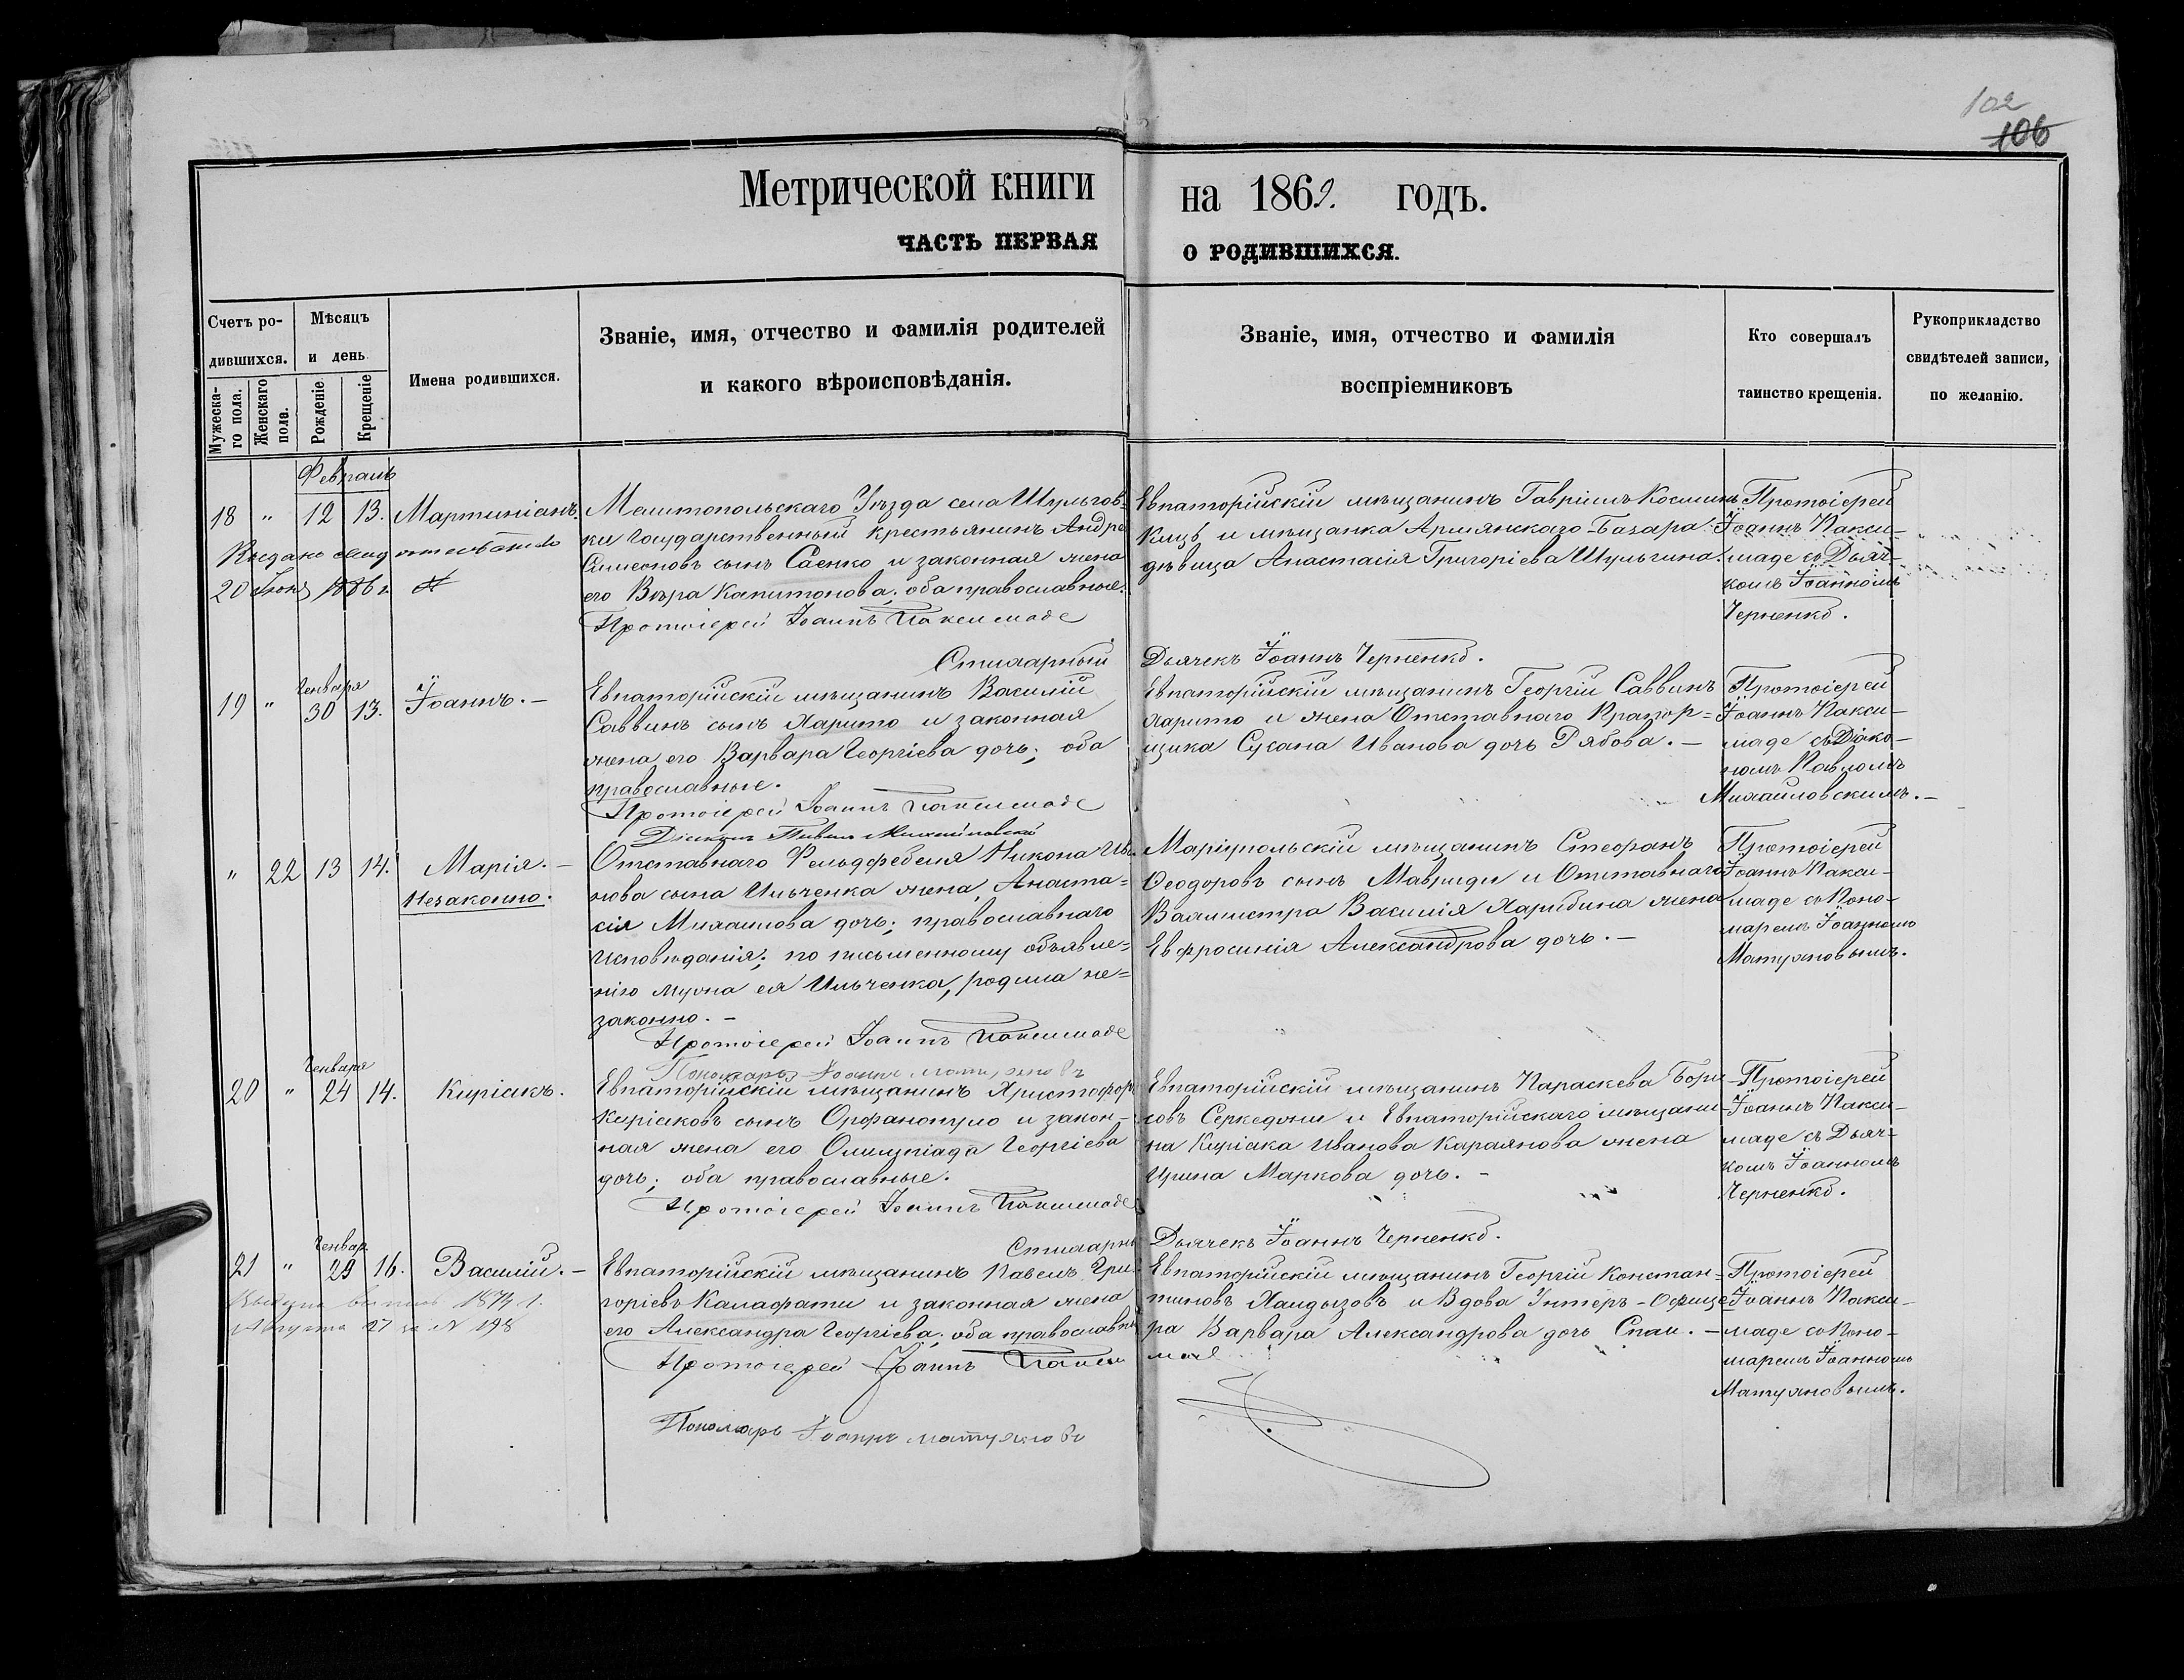 102
106
Метрической книги на 1869. годъ.
ЧАСТЬ ПЕРВАЯ О РОДИВШИХСЯ.
Счетъ ро-
дившихся.
Мужеска-
го пола.
Женскаго
пола.
Мѣсяцъ
и день
Рожденіе.
Крещеніе
Имена родившихся.
Званіе, имя, отчество и фамилія родителей
и какого вѣроисповѣданія.
Званіе, имя, отчество и фамилія
воспріемниковъ
Кто совершалъ
таинство крещенія.
Рукоприкладство
свидѣтелей записи,
по желанію.
Февраль
18 " 12 13. Мартиніанъ.
Выдано свидѣтельство
20 Іюня 1886 г.
Мелитопольскаго Уѣзда села Шульгов-
ки государственный крестьянинъ Андрей
Симеоновъ сынъ Саенко и законная жена
его Вѣра Капитонова; оба православные.
Протоіерей Іоаннъ Паксимаде
Стихарный
Евпаторійскій мѣщанинъ Гавріилъ Косминъ
Кицъ и мѣщанка Армянскаго-Базара:
дѣвица Анастасія Григоріева Шульгина.
Дьячекъ Іоаннъ Черненко.
Протоіерей
Іоаннъ Пакси-
маде съ Дьяч-
комъ Іоанномъ
Черненко.
Генваря
19 " 30 13. Іоаннъ. —
Евпаторійскій мѣщанинъ Василій
Саввинъ сынъ Харито и законная
жена его Варвара Георгіева дочь; оба
православные.
Протоіерей Іоаннъ Паксимаде
Діаконъ Павелъ Михайловскій
Евпаторійскій мѣщанинъ Георгій Саввинъ
Харито и жена Отставнаго Прапор-
щика Сусана Иванова дочь Рябова. —
Протоіерей
Іоаннъ Пакси-
маде съ Діако-
номъ Павломъ
Михайловскимъ. —
" 22 13 14. Марія. —
Незаконно.
Отставнаго Фельдфебеля Никона Ива-
нова сына Ильченка жена, Анаста-
сія Михаилова дочь; православнаго
исповѣданія; по письменному объявле-
нію мужа ея Ильченка, родила не-
законно. —
Протоіерей Іоаннъ Паксимаде
Пономарь Іоаннъ Матужновъ
Маріупольскій мѣщанинъ Стефанъ
Ѳеодоровъ сынъ Мавриди и Отставнаго
Вахмистра Василія Харибина жена
Евфросинія Александрова дочь. —
Протоіерей
Іоаннъ Пакси-
маде съ Поно-
маремъ Іоанномъ
Матужновымъ.
Генваря
20 " 24 14. Киріакъ.
Евпаторійскій мѣщанинъ Христофор
Киріаковъ сынъ Орфанопуло и закон-
ная жена его Олимпіада Георгіева
дочь; оба православные.
Протоіерей Іоаннъ Паксимаде
Стихарны
Евпаторійскій мѣщанинъ Параскева Бори-
совъ Серкеджи и Евпаторійскаго мѣщани-
на Киріака Иванова Караянова жена
Ирина Маркова дочь. —
Дьячекъ Іоаннъ Черненко.
Протоіерей
Іоаннъ Пакси-
маде съ Дьяч-
комъ Іоанномъ
Черненко.
Генвар
21 " 29 16. Василій. —
1874 г.
Августа 27 за N 198
Евпаторійскій мѣщанинъ Павелъ Гри-
горіевъ Калафати и законная жена
его Александра Георгіева; оба православны
Протоіерей Іоаннъ Пакси маде
Пономарь Іоаннъ Матужновъ
Евпаторійскій мѣщанинъ Георгій Констан-
тиновъ Халдызовъ и Вдова Унтеръ-Офице-
ра Варвара Александрова дочь Спаи. —
Протоіерей
Іоаннъ Пакси-
маде съ Поно-
маремъ Іоанномъ
Матужновымъ.